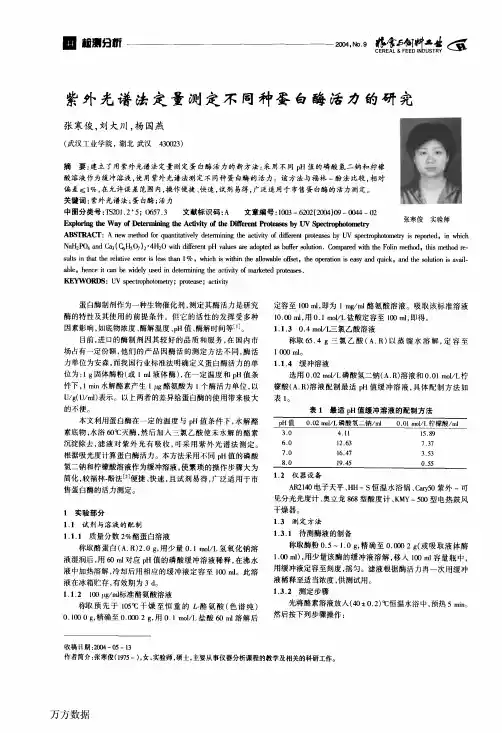 检测分析
2004, No. 9
粮食与饲料工业
CEREAL & FEED INDUSTRY
紫外光谱法定量测定不同种蛋白酶活力的研究
张寒俊,刘大川,杨国燕
(武汉工业学院, 湖北 武汉 430023)
摘 要:建立了用紫外光谱法定量测定蛋白酶活力的新方法:采用不同 pH 值的磷酸氢二钠和柠檬
酸溶液作为缓冲溶液,使用紫外光谱法测定不同种蛋白酶的活力。该方法与福林-酚法比较,相对
偏差≤1%,在允许误差范围内,操作便捷、快速,试剂易得,广泛适用于市售蛋白酶的活力测定。
关键词:紫外光谱法;蛋白酶;活力
中图分类号:TS201.2+5; O657.3 文献标识码:A 文章编号:1003-6202(2004)09-0044-02
张寒俊 实验师
Exploring the Way of Determining the Activity of the Different Proteases by UV Spectrophotometry
ABSTRACT: A new method for quantitatively determining the activity of different proteases by UV spectrophotometry is reported, in which
NaH2PO4 and Ca3(C6H5O7)2·4H2O with different pH values are adopted as buffer solution. Compared with the Folin method, this method re-
sults in that the relative error is less than 1%, which is within the allowable offset, the operation is easy and quick, and the solution is avail-
able, hence it can be widely used in determining the activity of marketed proteases.
KEYWORDS: UV spectrophotometry; protease; activity
蛋白酶制剂作为一种生物催化剂,测定其酶活力是研究
酶的特性及其使用的前提条件。但它的活性的发挥受多种
因素影响,如底物浓度、酶解温度、pH 值、酶解时间等[1]。
目前,进口的酶制剂因其较好的品质和服务,在国内市
场占有一定份额,他们的产品因酶活的测定方法不同,酶活
力单位为安森,而我国行业标准法明确定义蛋白酶活力的单
位为:1 g 固体酶粉(或 1 ml 液体酶),在一定温度和 pH 值条
件下,1 min 水解酪素产生 1 μg 酪氨酸为 1 个酶活力单位,以
U/g(U/ml)表示。以上两者的差异给蛋白酶的使用带来极大
的不便。
本文利用蛋白酶在一定的温度与 pH 值条件下,水解酪
素底物,水浴 60℃灭酶,然后加入三氯乙酸使未水解的酪素
沉淀除去,滤液对紫外光有吸收,可采用紫外光谱法测定。
根据吸光度计算蛋白酶活力。本方法采用不同 pH 值的磷酸
氢二钠和柠檬酸溶液作为缓冲溶液,使繁琐的操作步骤大为
简化,较福林-酚法[2]便捷、快速,且试剂易得,广泛适用于市
售蛋白酶的活力测定。
1 实验部分
1.1 试剂与溶液的配制
1.1.1 质量分数 2%酪蛋白溶液
称取酪蛋白(A.R)2.0 g,用少量 0.1 mol/L 氢氧化钠溶
液湿润后,用 60 ml 对应 pH 值的磷酸缓冲溶液稀释,在沸水
浴中加热溶解,冷却后用相应的缓冲液定容至 100 ml。此溶
液在冰箱贮存,有效期为 3 d。
1.1.2 100 μg/ml标准酪氨酸溶液
称取预先于 105℃干燥至恒重的 L-酪氨酸(色谱纯)
0.100 0 g,精确至 0.000 2 g,用 0.1 mol/L 盐酸 60 ml 溶解后
定容至 100 ml,即为 1 mg/ml 酪氨酸溶液。吸取该标准溶液
10.00 ml,用 0.1 mol/L 盐酸定容至 100 ml,即得。
1.1.3 0.4 mol/L三氯乙酸溶液
称取 65.4 g 三氯乙酸(A.R)以蒸馏水溶解,定容至
1 000 ml。
1.1.4 缓冲溶液
选用 0.02 mol/L 磷酸氢二钠(A.R)溶液和 0.01 mol/L 柠
檬酸(A.R)溶液配制最适 pH 值缓冲溶液,具体配制方法如
表 1。
表 1 最适 pH值缓冲溶液的配制方法
pH 值 0.02 mol/L 磷酸氢二钠/ml 0.01 mol/L 柠檬酸/ml
3.0 4.11 15.89
6.0 12.63 7.37
7.0 16.47 3.53
8.0 19.45 0.55
1.2 仪器设备
AR2140 电子天平,HH-S 恒温水浴锅,Cary50 紫外-可
见分光光度计,奥立龙 868 型酸度计,KMY-500 型电热鼓风
干燥器。
1.3 测定方法
1.3.1 待测酶液的制备
称取酶粉 0.5~1.0 g,精确至 0.000 2 g(或吸取液体酶
1.00 ml),用少量该酶的缓冲液溶解,移入 100 ml 容量瓶中,
用缓冲液定容至刻度,摇匀。滤液根据酶活力再一次用缓冲
液稀释至适当浓度,供测试用。
1.3.2 测定步骤
先将酪素溶液放入(40±0.2)℃恒温水浴中,预热 5 min。
然后按下列步骤操作:
收稿日期:2004-05-13
作者简介:张寒俊(1975-),女,实验师,硕士,主要从事仪器分析课程的教学及相关的科研工作。
万方数据